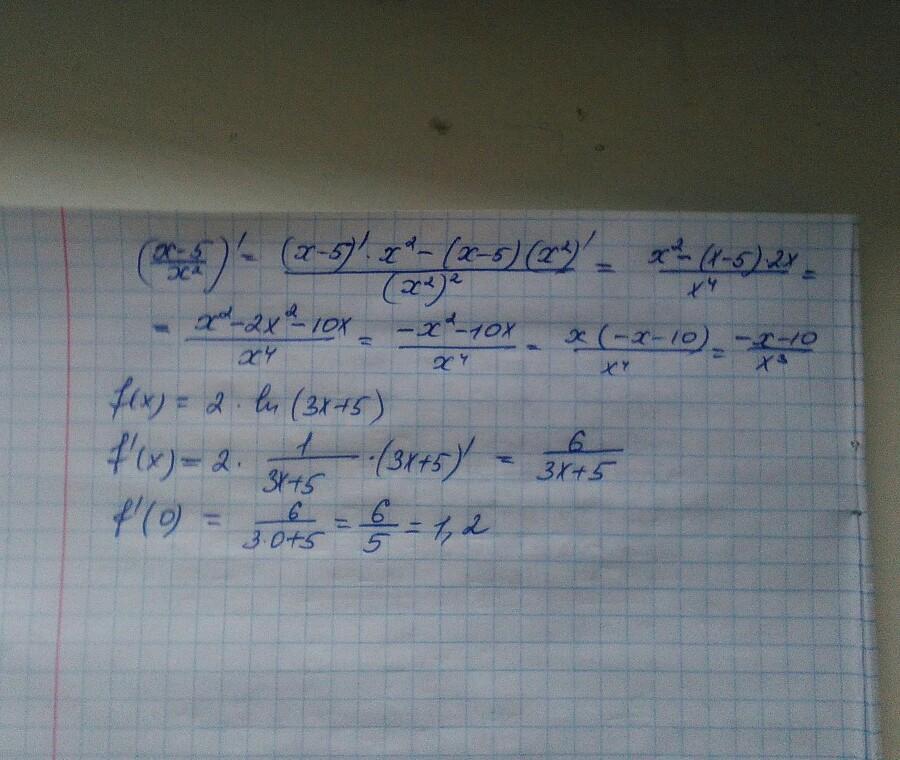 ((x-5)/x²)' = ((x-5)'·x² - (x-5)(x²)')/(x²)² = (x² - (x-5)·2x)/x⁴ =
= (x² - 2x² - 10x)/x⁴ = (-x² - 10x)/x⁴ = x(-x-10)/x⁴ = (-x-10)/x³
f(x) = 2·ln(3x+5)
f'(x) = 2·1/(3x+5)·(3x+5)' = 6/(3x+5)
f'(0) = 6/(3·0+5) = 6/5 = 1,2